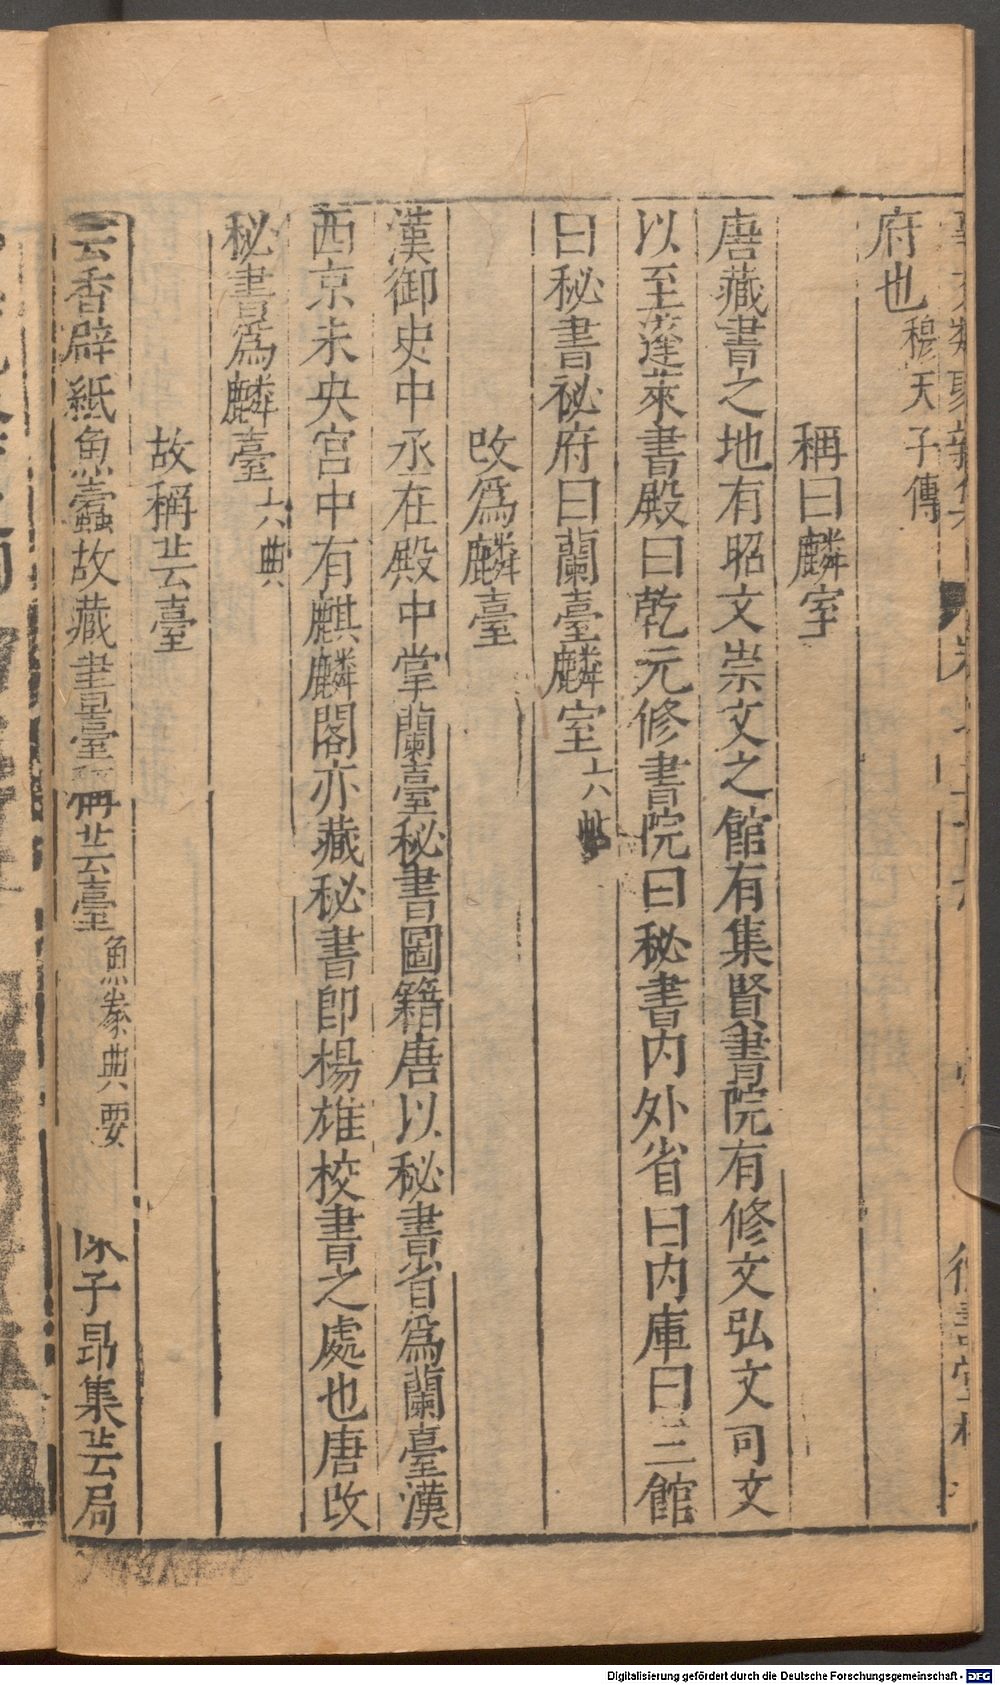 府也 穆天子傳
稱曰麟室
唐藏書之地有昭文崇文之館有集賢書院有修文弘文司文
以至蓬萊書殿曰乾元修書院曰秘書内外省曰内庫曰三館
曰秘書祕府曰蘭臺麟室 六帖
改爲麟臺
漢御史中丞在殿中掌蘭臺秘書圖籍唐以秘書省爲蘭臺漢
西京未央宫中有麒麟閣亦藏秘書即楊雄校書之處也唐改
秘書爲麟臺 六典
故稱芸臺
芸香辟紙魚蠹故藏書臺稱芸臺 魚豢典要 陳子昂集芸局
Digitalisierung gefördert durch die Deutsche Forschungsgemeinschaft - DFG